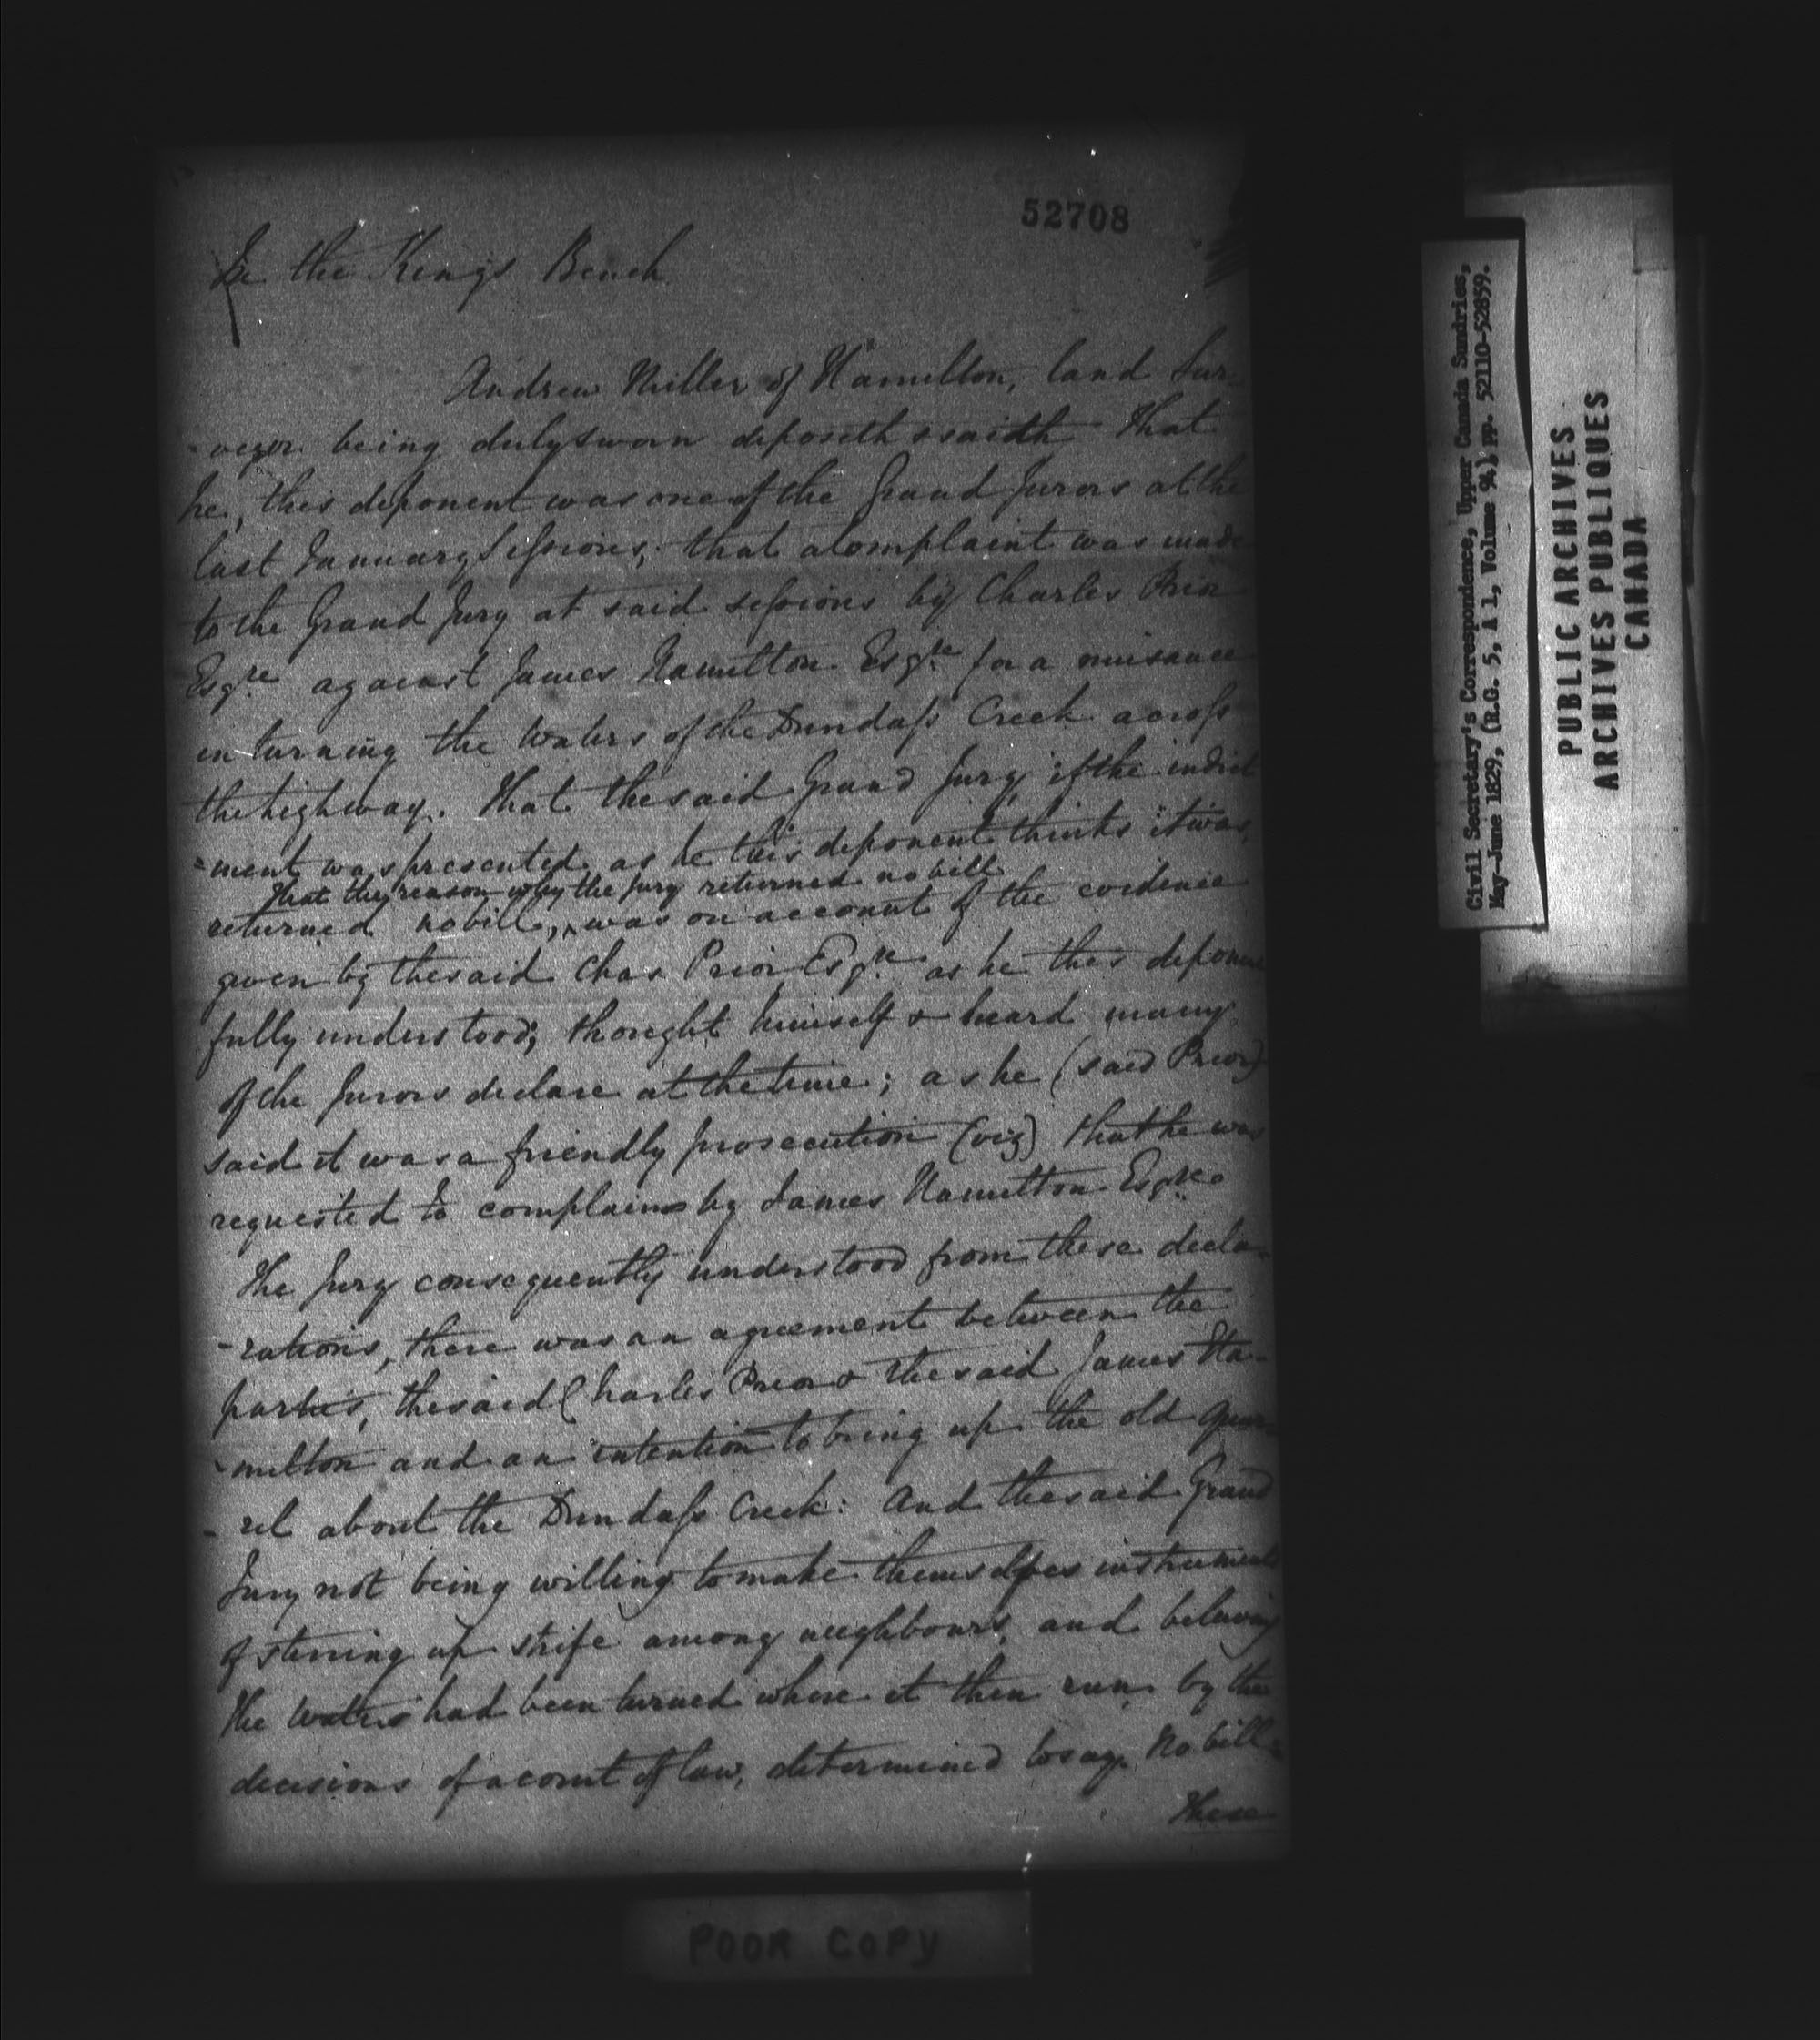 52708
In the Kings Bench
Andrew Miller of Hamilton, land Sur-
-veyor being duly sworn deposeth & saidth That
he, this deponent was one of the Grand Jurors at the
last January Sessions; that a Complaint was made
to the Grand Jury at said sessions by Charles Prior
Esqre against James Hamilton Esqre for a nuisance
in turning the Waters of the Dundass Creek across
the highway. That the said Grand Jury, if the indict
=ment was presented, as he this deponent thinks it was,
That they reason why the Jury returned no bill
returned no bill, ^ was on account of the evidence
given by the said Chas Prior Esqre as he this deponent
fully understood; thought himself & heard many
of the Jurors declare at the time; as he (said Prior)
said it was a friendly prosecution (viz) that he was
requested to complain by James Hamilton Esqre
The Jury consequently understood from these decla-
-rations, there was an agreement between the
parties, the said Charles Prior & the said James Ha-
-milton and an intention to bring up the old quar-
-rel about the Dundass Creek: And the said Grand
Jury not being willing to make themselves instruments
of stirring up strife among neighbours, and believing
the waters had been turned where it then run by the
decisions of a court of law, determined to say No bill.
These
POOR COPY
Civil Secretary's Correspondence, Upper Canada Sundries,
May-June 1829, (R.G. 5, A 1, Volume 94) pp. 52110-52859.
PUBLIC ARCHIVES
ARCHIVES PUBLIQUES
CANADA